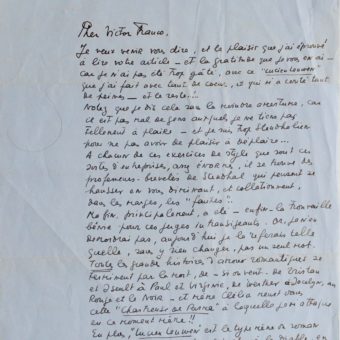 Cher Victor Franco,
Je veux venir vous dire, et le plaisir que j'ai éprouvé
à lire votre article - et la gratitude que je vous en ai -
car je n'ai pas été trop gâté, avec ce "Lucien Leuwen"
que j'ai fait avec tant de coeur, et qui m'a coûté tant
de peines - et le reste!!
Notez que je dis cela sans la moindre amertume, car
ce est pas mal de gens auxquels je ne tiens pas
tellement à plaire - et je suis trop stendhalien
pour ne pas avoir de plaisir à déplaire...
A chacun de ces exercices de style que sont ces
entreprises, et se trouve des
professeurs - brevetés de Stendhal qui pensent se
hausser en vous diminuant, et collationnent,
dans les marges, les "fautes".
Ma fin, principalement, a été - enfin - la trouvaille
bénie pour ces juges intransigeants. Or, je n'en
démordrai pas, aujourd'hui je la referais telle
quelle, sans y rien changer, pas un seul mot.
Toutes les grandes histoires d'amour romantiques se
terminent par la mort, de - si souvent - de Tristan
et Iseult à Paul et Virginie, de Werther à Jocelyn, au
Rouge et le Noir - et même Clélia
cette "Chartreuse de Parme" à laquelle je m'attaque
en ce moment même!!
En plus "Lucien Leuwen" est le type même du roman